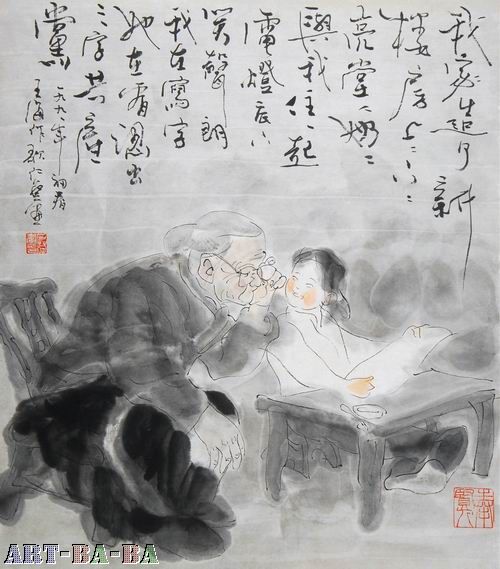 我家造起了新
樓房上下
亮堂堂奶奶
與我住一起
電燈底下
笑聲朗
我在寫字
她在看認出
三字共產
黨
一九九一年初春
王海作
ART-BA-BA